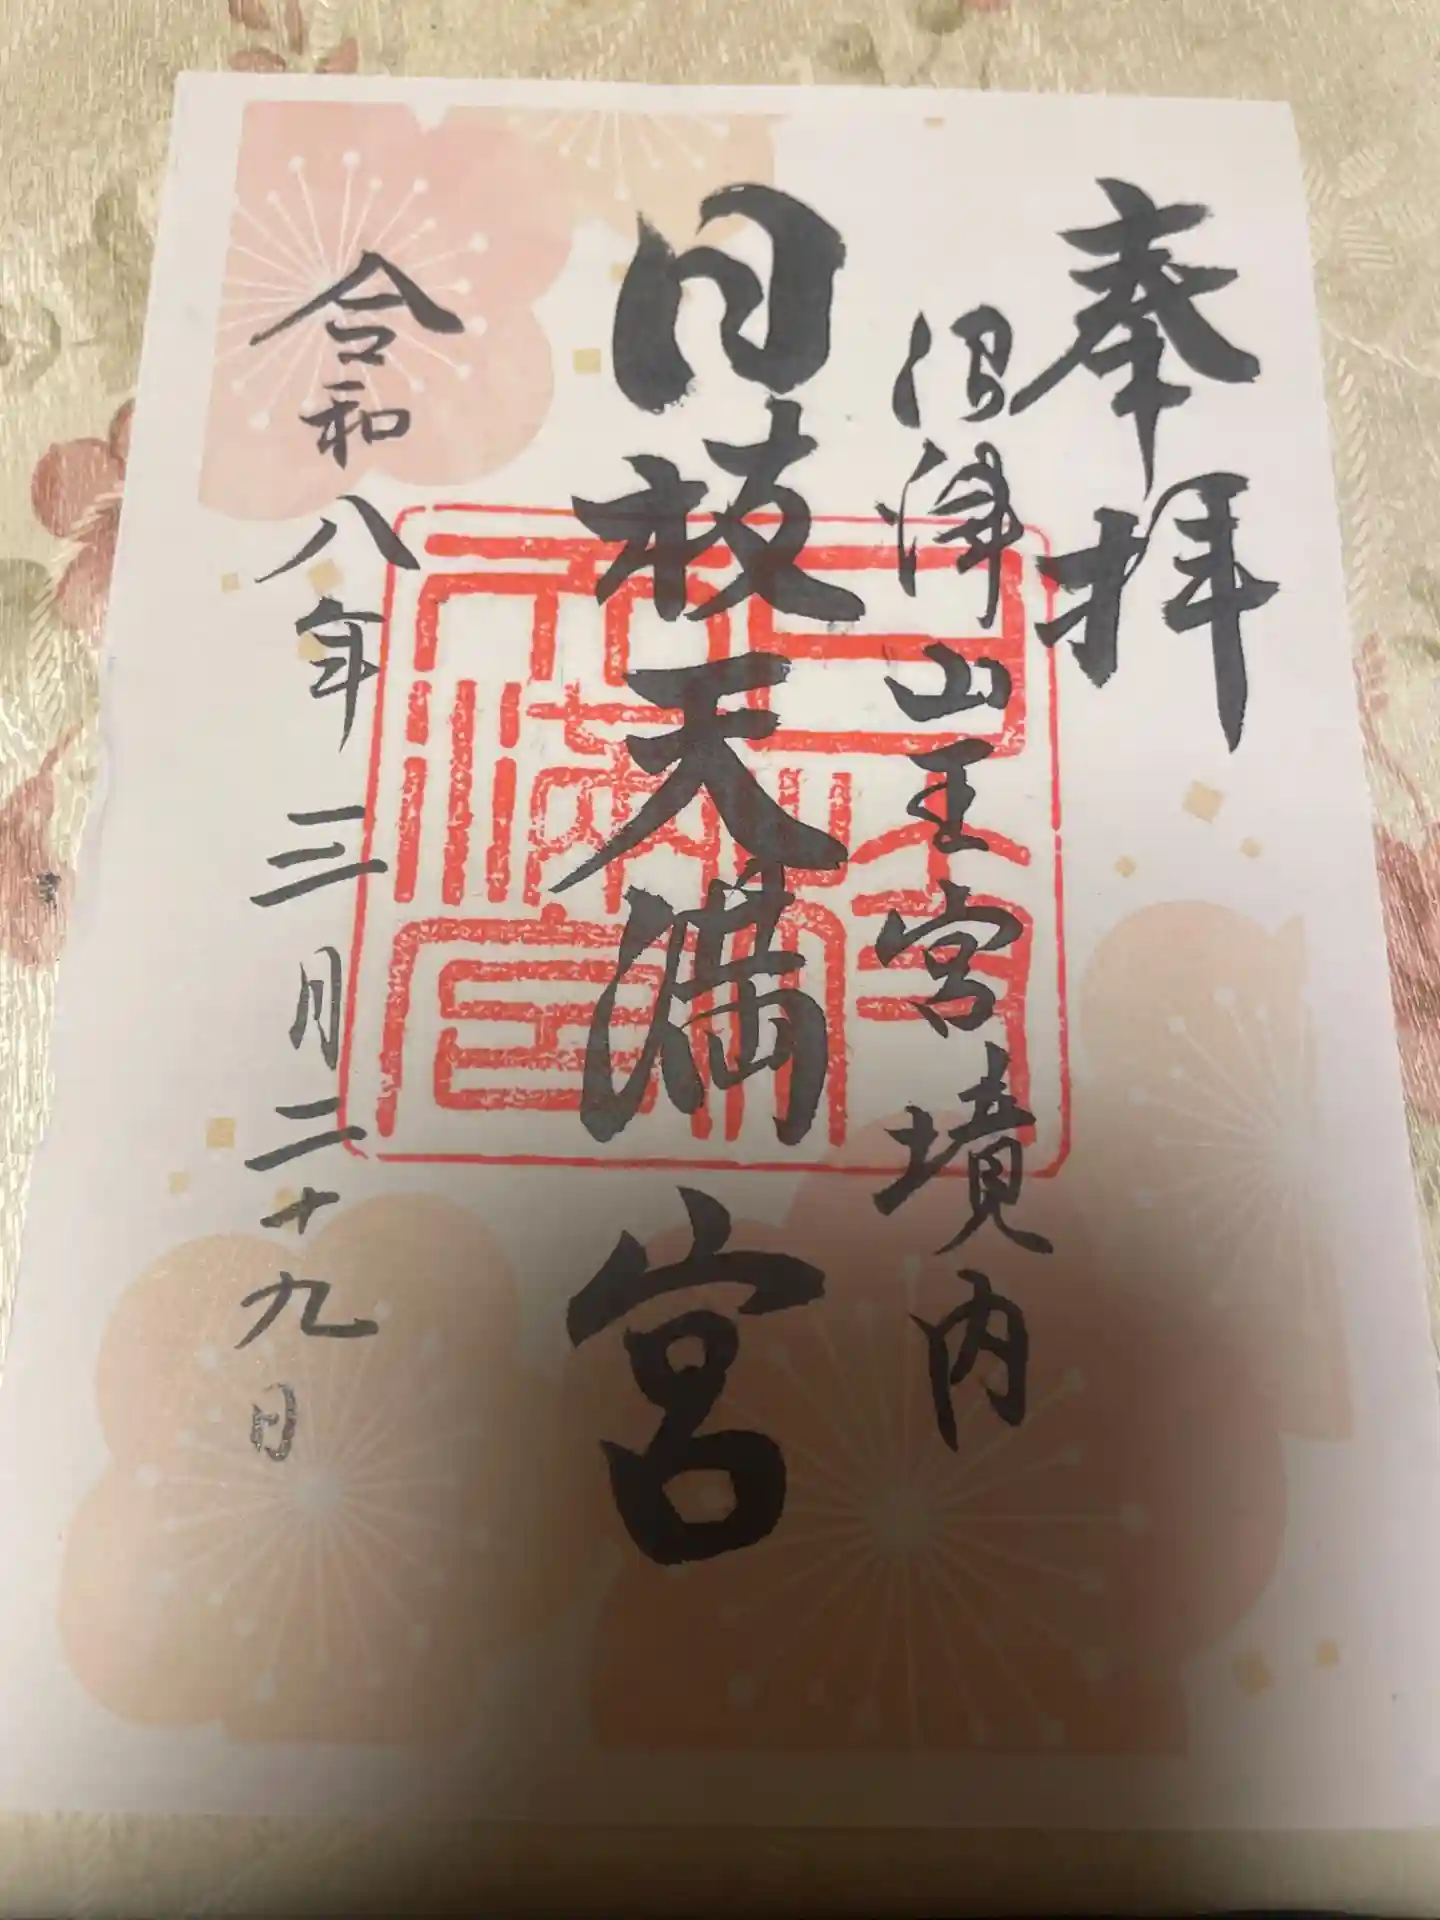 奉拝
沼津山王宮境内
日枝天満宮
令和八年三月二十九日
日枝神社天満宮